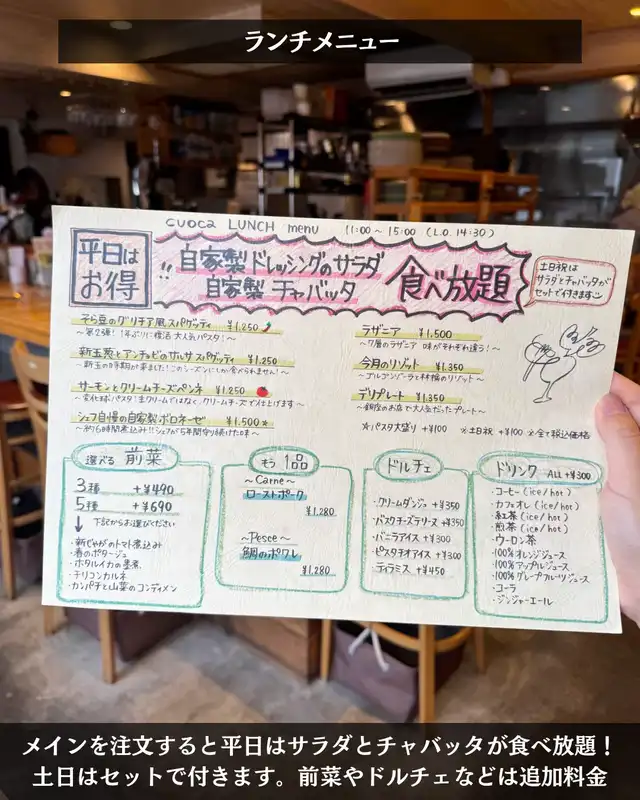 ランチメニュー
CUOCa LUNCH menu 11:00~15:00 (L.O.14:30)
平日は
お得!!
自家製ドレッシングのサラダ
自家製チャバッタ
食べ放題
土日祝は
サラダとチャバッタが
セットで付きます
そら豆のグリチア風スパゲッティ ¥1,250
~第2弾! 1年ぶりに復活 大人気パスタ!~
新玉葱とアンチョビのサルサスパゲッティ ¥1,250
サーモンとクリームチーズペンネ ¥1,250
シェフ自慢の自家製ボロネーゼ ¥1,500☆
~約6時間煮込み!!シェフが5年間守り続けた味~
ラザニア ¥1,500
~7層のラザニア 味がそれぞれ違う!~
今月のリゾット ¥1,350
~ゴルゴンゾーラと林檎のリゾット~
デリプレート ¥1,350
~銀座のお店で大人気だったプレート~
☆パスタ大盛り +¥100 ※土日祝 +¥100 ※全て税込価格
選べる 前菜
3種 +¥490
5種 +¥690
↓ 下記からお選びください
・新じゃがのトマト煮込み
・春のポタージュ
・ホタルイカの墨煮
・チリコンカルネ
・カンパチと山菜のコンディメン
もう1品
~Carne~
ローストポーク
¥1,280
~Pesce~
鯛のポワレ
¥1,280
ドルチェ
・クリームダンジュ +¥350
・バスクチーズテリーヌ +¥350
・バニラアイス +¥300
・ピスタチオアイス +¥300
・ティラミス +¥450
ドリンク ALL +¥300
・コーヒー (ice/hot)
・カフェオレ (ice/hot)
・紅茶 (ice/hot)
・煎茶 (ice/hot)
・ウーロン茶
・100%オレンジジュース
・100%アップルジュース
・100%グレープフルーツジュース
・コーラ
・ジンジャーエール
メインを注文すると平日はサラダとチャバッタが食べ放題!
土日はセットで付きます。前菜やドルチェなどは追加料金